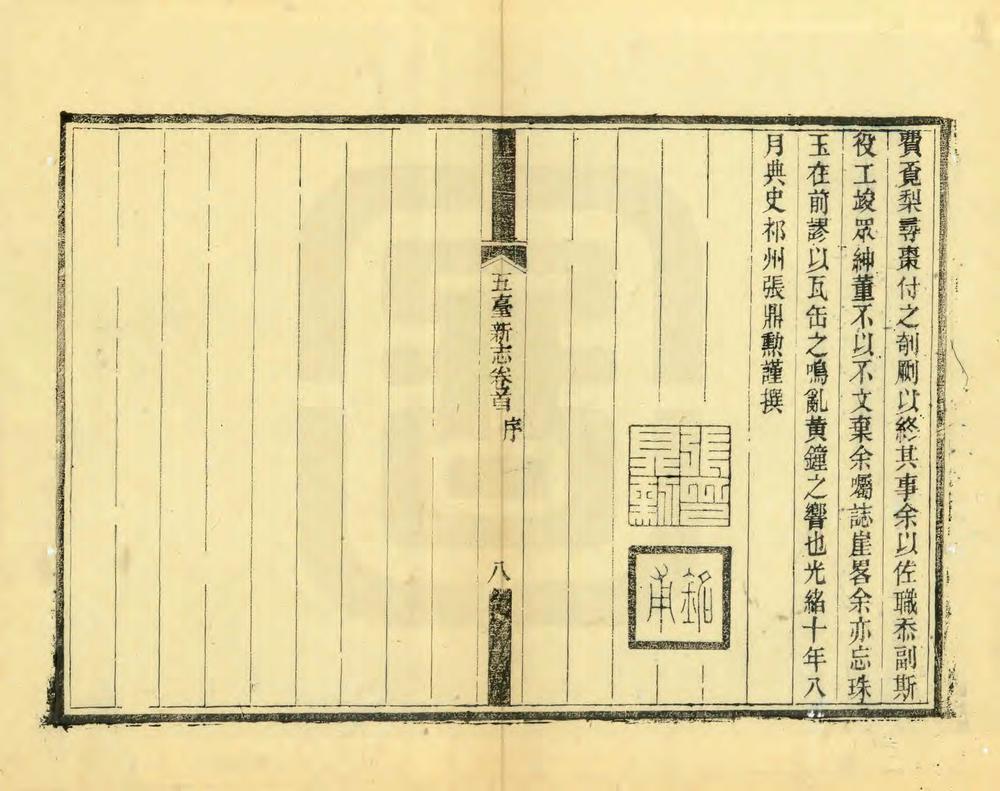 費覓梨尋棗付之剞劂以終其事余以佐職忝副斯
役工竣眾紳董不以不文棄余囑誌崖畧余亦忘珠
玉在前謬以瓦缶之鳴亂黃鐘之響也光緒十年八
月典史祁州張鼎勲謹撰
張鼎勲印
銘甫
五臺新志卷首
序
八